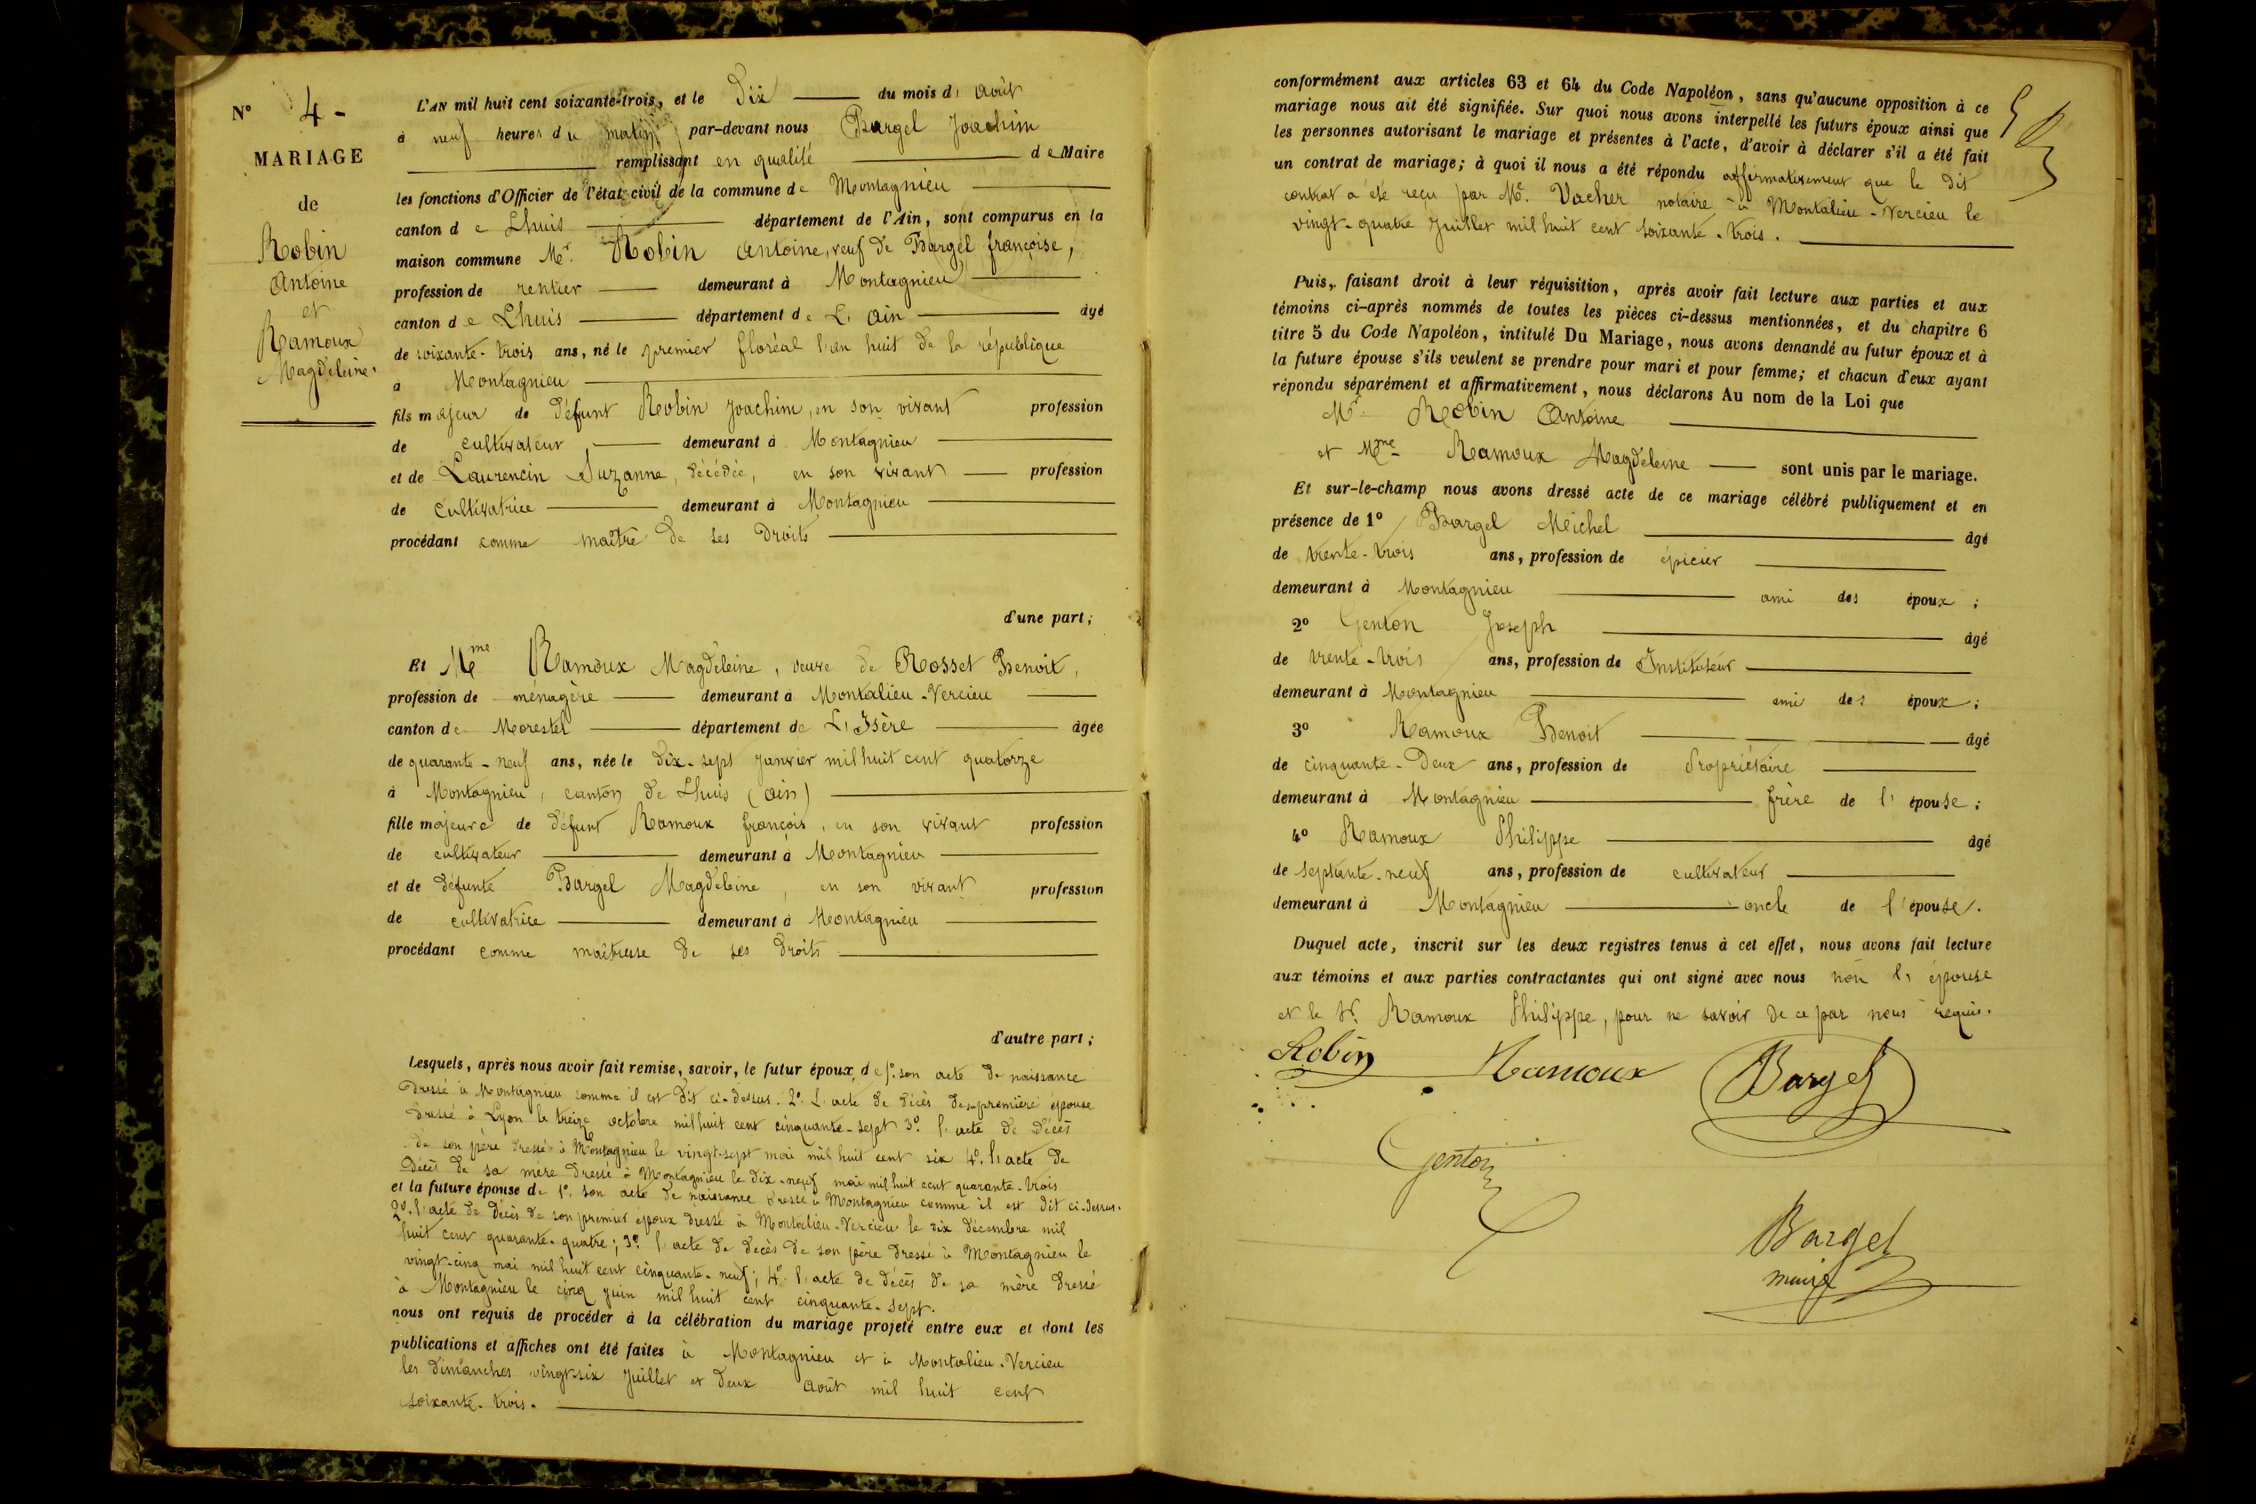 N° 4 -
MARIAGE
de
Robin
Antoine
et
Ramoux
Magdeleine.
L'AN mil huit cent soixante-trois, et le Dix du mois d' Août
à neuf heures du matin par-devant nous Bargel Joachim
remplissant en qualité de Maire
les fonctions d'Officier de l'état civil de la commune de Montagnieu
canton de Lhuis département de l'Ain, sont comparus en la
maison commune Mr. Robin Antoine, veuf de Bargel françoise,
profession de rentier demeurant à Montagnieu
canton de Lhuis département de L'Ain âgé
de soixante-trois ans, né le premier floréal l'an huit de la république
a Montagnieu
fils majeur de défunt Robin Joachim, en son vivant profession
de cultivateur demeurant à Montagnieu
et de Laurencin Suzanne, décédée, en son vivant profession
de cultivatrice demeurant à Montagnieu
procédant comme maître de ses droits
d'une part;
Et Mme Ramoux Magdeleine, veuve de Rosset Benoit,
profession de ménagère demeurant à Montalieu-Vercieu
canton de Morestel département de L'Isère âgée
de quarante-neuf ans, née le dix-sept Janvier mil huit cent quatorze
à Montagnieu, canton de Lhuis (Ain)
fille majeure de défunt Ramoux françois, en son vivant profession
de cultivateur demeurant à Montagnieu
et de défunte Bargel Magdeleine, en son vivant profession
de cultivatrice demeurant à Montagnieu
procédant comme maîtresse de ses droits
d'autre part;
Lesquels, après nous avoir fait remise, savoir, le futur époux, de 1° son acte de naissance
dressé à Montagnieu comme il est dit ci-dessus. 2° L'acte de décès de sa première épouse
dressé à Lyon le treize octobre mil huit cent cinquante-sept 3° l'acte de décès
de son père dressé à Montagnieu le vingt-sept mai mil huit cent six 4° l'acte de
décès de sa mère dressé à Montagnieu le dix-neuf mai mil huit cent quarante-trois
et la future épouse de 1° son acte de naissance dressé à Montagnieu comme il est dit ci-dessus.
2° l'acte de décès de son premier époux dressé à Montalieu-Vercieu le dix décembre mil
huit cent quarante-quatre; 3° l'acte de décès de son père dressé à Montagnieu le
vingt-cinq mai mil huit cent cinquante-neuf; 4° l'acte de décès de sa mère dressé
à Montagnieu le cinq juin mil huit cent cinquante-sept.
nous ont requis de procéder à la célébration du mariage projeté entre eux et dont les
publications et affiches ont été faites à Montagnieu et à Montalieu-Vercieu
les dimanches vingt-six Juillet et deux Août mil huit cent
soixante-trois.
conformément aux articles 63 et 64 du Code Napoléon, sans qu'aucune opposition à ce
mariage nous ait été signifiée. Sur quoi nous avons interpellé les futurs époux ainsi que
les personnes autorisant le mariage et présentes à l'acte, d'avoir à déclarer s'il a été fait
un contrat de mariage; à quoi il nous a été répondu affirmativement que le dit
contrat a été reçu par Me. Vacher notaire à Montalieu-Vercieu le
vingt-quatre Juillet mil huit cent soixante-trois.
Puis, faisant droit à leur réquisition, après avoir fait lecture aux parties et aux
témoins ci-après nommés de toutes les pièces ci-dessus mentionnées, et du chapitre 6
titre 5 du Code Napoléon, intitulé Du Mariage, nous avons demandé au futur époux et à
la future épouse s'ils veulent se prendre pour mari et pour femme; et chacun d'eux ayant
répondu séparément et affirmativement, nous déclarons Au nom de la Loi que
Mr Robin Antoine
et Mme Ramoux Magdeleine sont unis par le mariage.
Et sur-le-champ nous avons dressé acte de ce mariage célébré publiquement et en
présence de 1° Bargel Michel âgé
de trente-trois ans, profession de épicier
demeurant à Montagnieu ami des époux;
2° Genton Joseph âgé
de trente-trois ans, profession de Instituteur
demeurant à Montagnieu ami des époux;
3° Ramoux Benoit âgé
de cinquante-deux ans, profession de Propriétaire
demeurant à Montagnieu frère de l'épouse;
4° Ramoux Philippe âgé
de septante-neuf ans, profession de cultivateur
demeurant à Montagnieu oncle de l'épouse.
Duquel acte, inscrit sur les deux registres tenus à cet effet, nous avons fait lecture
aux témoins et aux parties contractantes qui ont signé avec nous non l'épouse
et le Sr. Ramoux Philippe, pour ne savoir de ce par nous requis.
Robin Ramoux Bargel
Genton
Bargel
maire